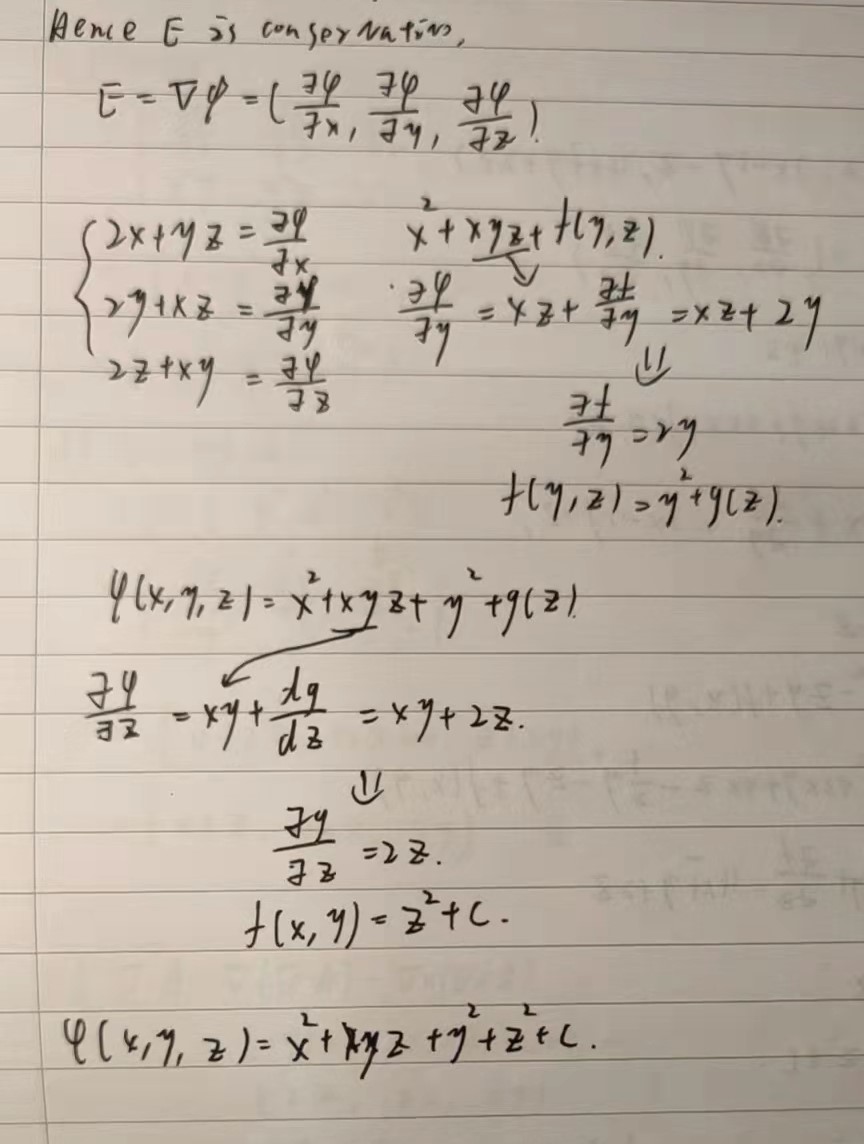 Hence E is conservative,
E = ∇φ = (∂φ/∂x, ∂φ/∂y, ∂φ/∂z).
2x+yz = ∂φ/∂x    x²+xyz+f(y,z).
2y+xz = ∂φ/∂y    ∂φ/∂y = xz + ∂f/∂y = xz+2y
2z+xy = ∂φ/∂z    ⇓
∂f/∂y = 2y
f(y,z) = y²+g(z).
φ(x,y,z) = x²+xyz+y²+g(z).
∂φ/∂z = xy + dg/dz = xy+2z.
⇓
∂g/∂z = 2z.
f(x,y) = z²+C.
φ(x,y,z) = x²+xyz+y²+z²+C.